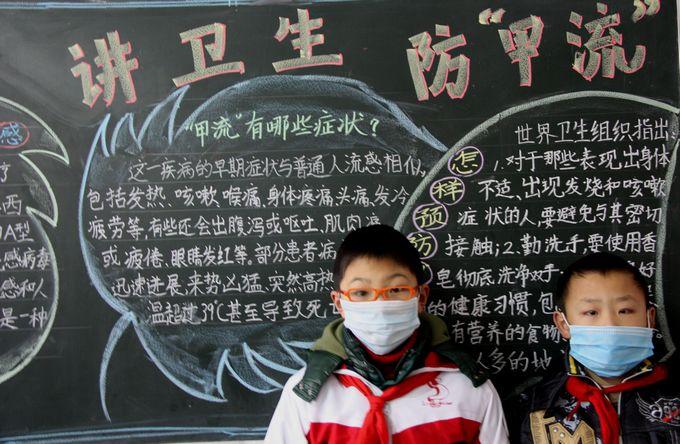 讲卫生 防"甲流"
感
了
西
A型
感病毒
感和人
是一种
"甲流"有哪些症状?
这一疾病的早期症状与普通人流感相似,
包括发热、咳嗽、喉痛、身体疼痛、头痛、发冷
疲劳等,有些还会出腹泻或呕吐、肌肉
或疲倦、眼睛发红等。部分患者病
迅速进展来势凶猛、突然高热
温超过39℃甚至导致死
怎样预防
世界卫生组织指出:
1.对于那些表现出身体
不适、出现发烧和咳嗽
症状的人,要避免与其密切
接触;2.勤洗手,要使用香
皂彻底洗净双手;
好
的健康习惯,包
有营养的食物
人多的地
926